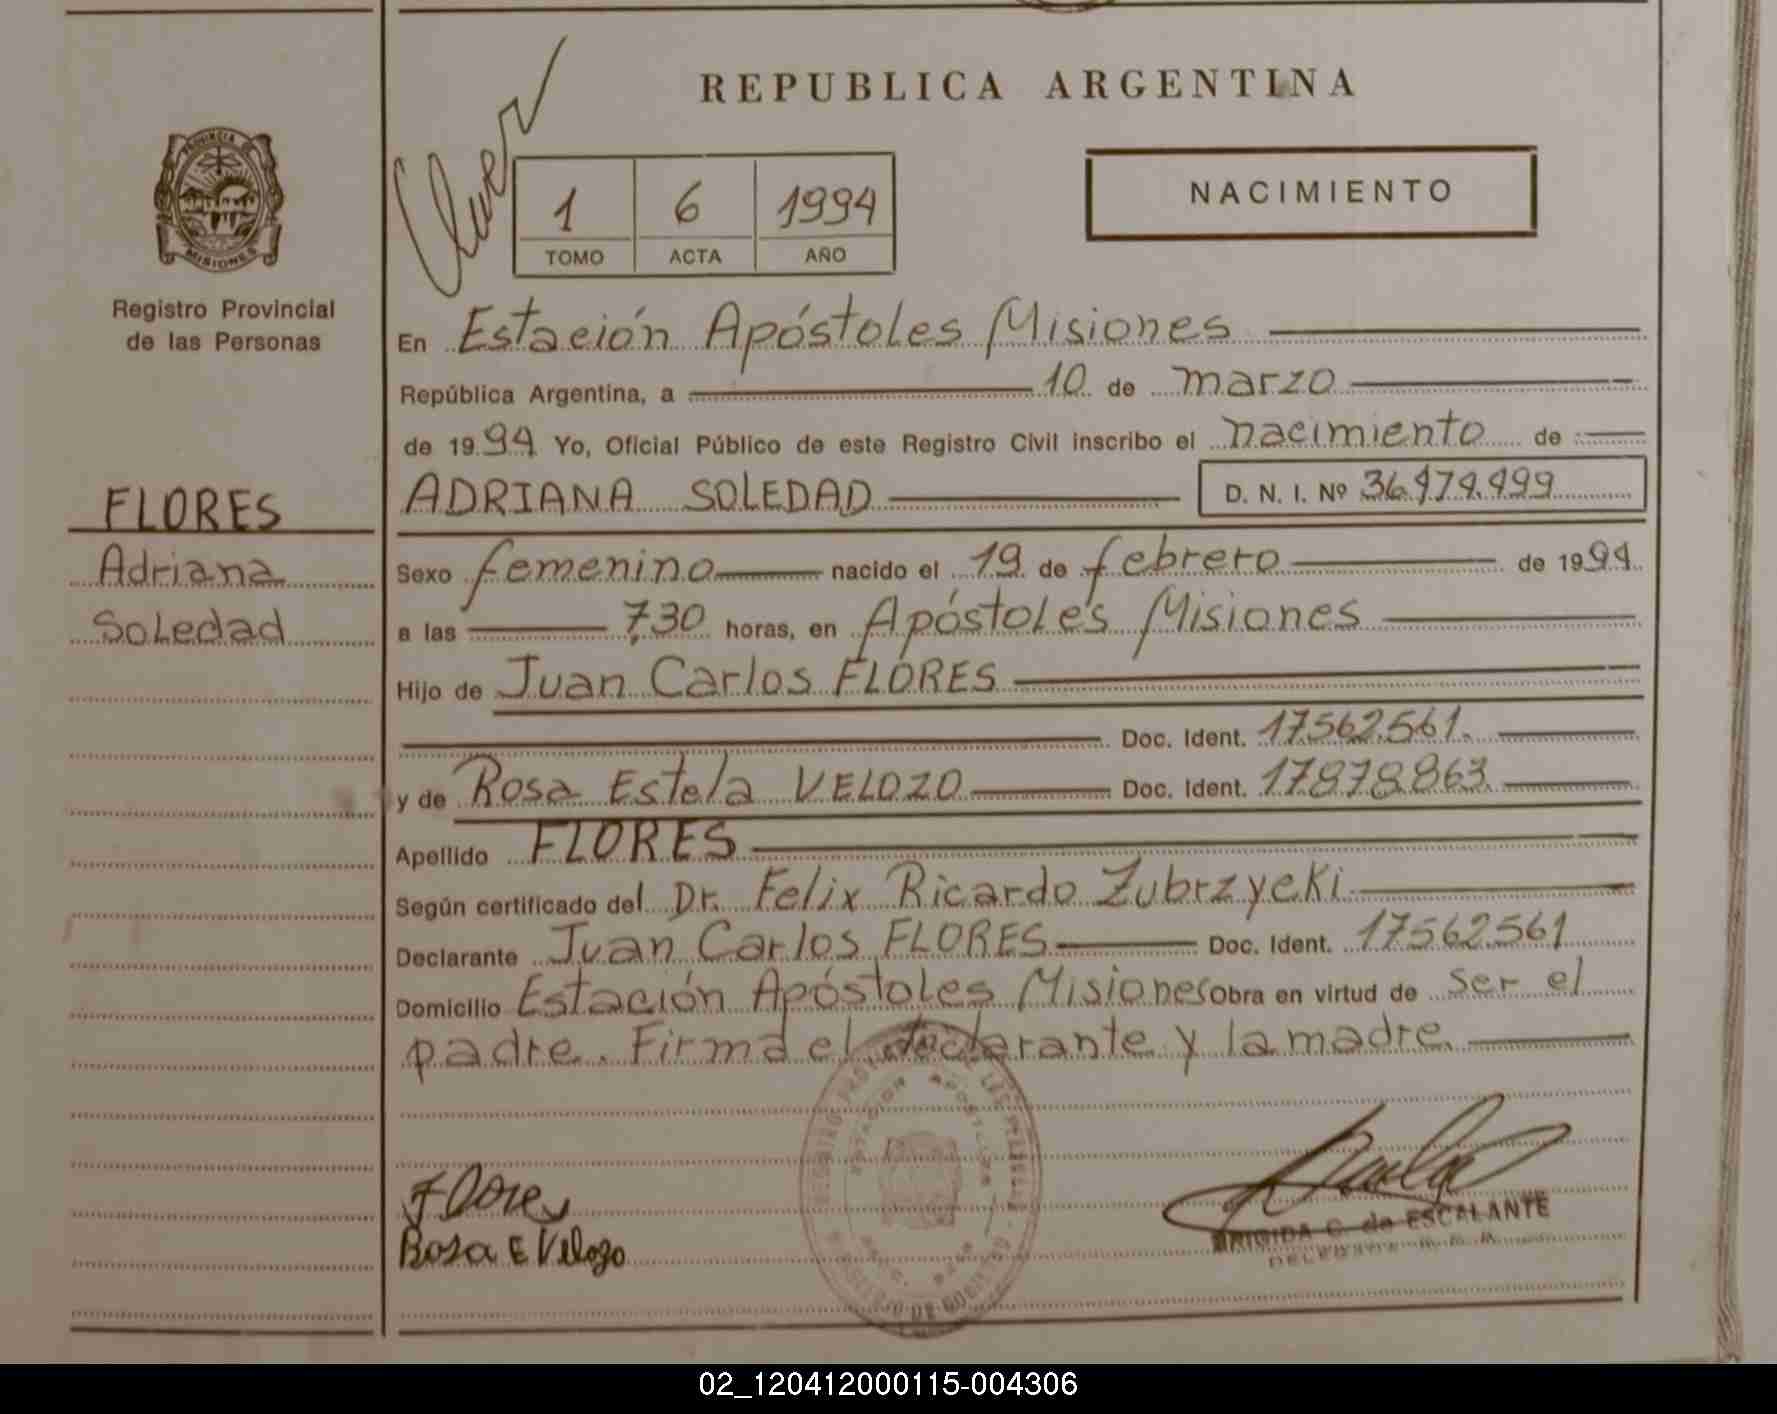 REPUBLICA ARGENTINA
PROVINCIA DE
MISIONES
Registro Provincial
de las Personas
1 6 1994
TOMO ACTA AÑO
NACIMIENTO
En Estación Apóstoles Misiones
República Argentina, a 10 de marzo
de 1994 Yo, Oficial Público de este Registro Civil inscribo el nacimiento de
FLORES
Adriana
Soledad
ADRIANA SOLEDAD D. N. I. Nº
Sexo femenino nacido el 19 de febrero de 1994
a las 7,30 horas, en Apóstoles Misiones
Hijo de Juan Carlos FLORES
Doc. Ident. 17562.561.
y de Rosa Estela VELOZO Doc. Ident. 17878863
Apellido FLORES
Según certificado del Dr. Felix Ricardo Zubrzycki
Declarante Juan Carlos FLORES Doc. Ident. 17562561
Domicilio Estación Apóstoles Misiones Obra en virtud de ser el
padre. Firma el declarante y la madre.
Flores
Rosa E Velozo
BRIGIDA C. de ESCALANTE
02_120412000115-004306